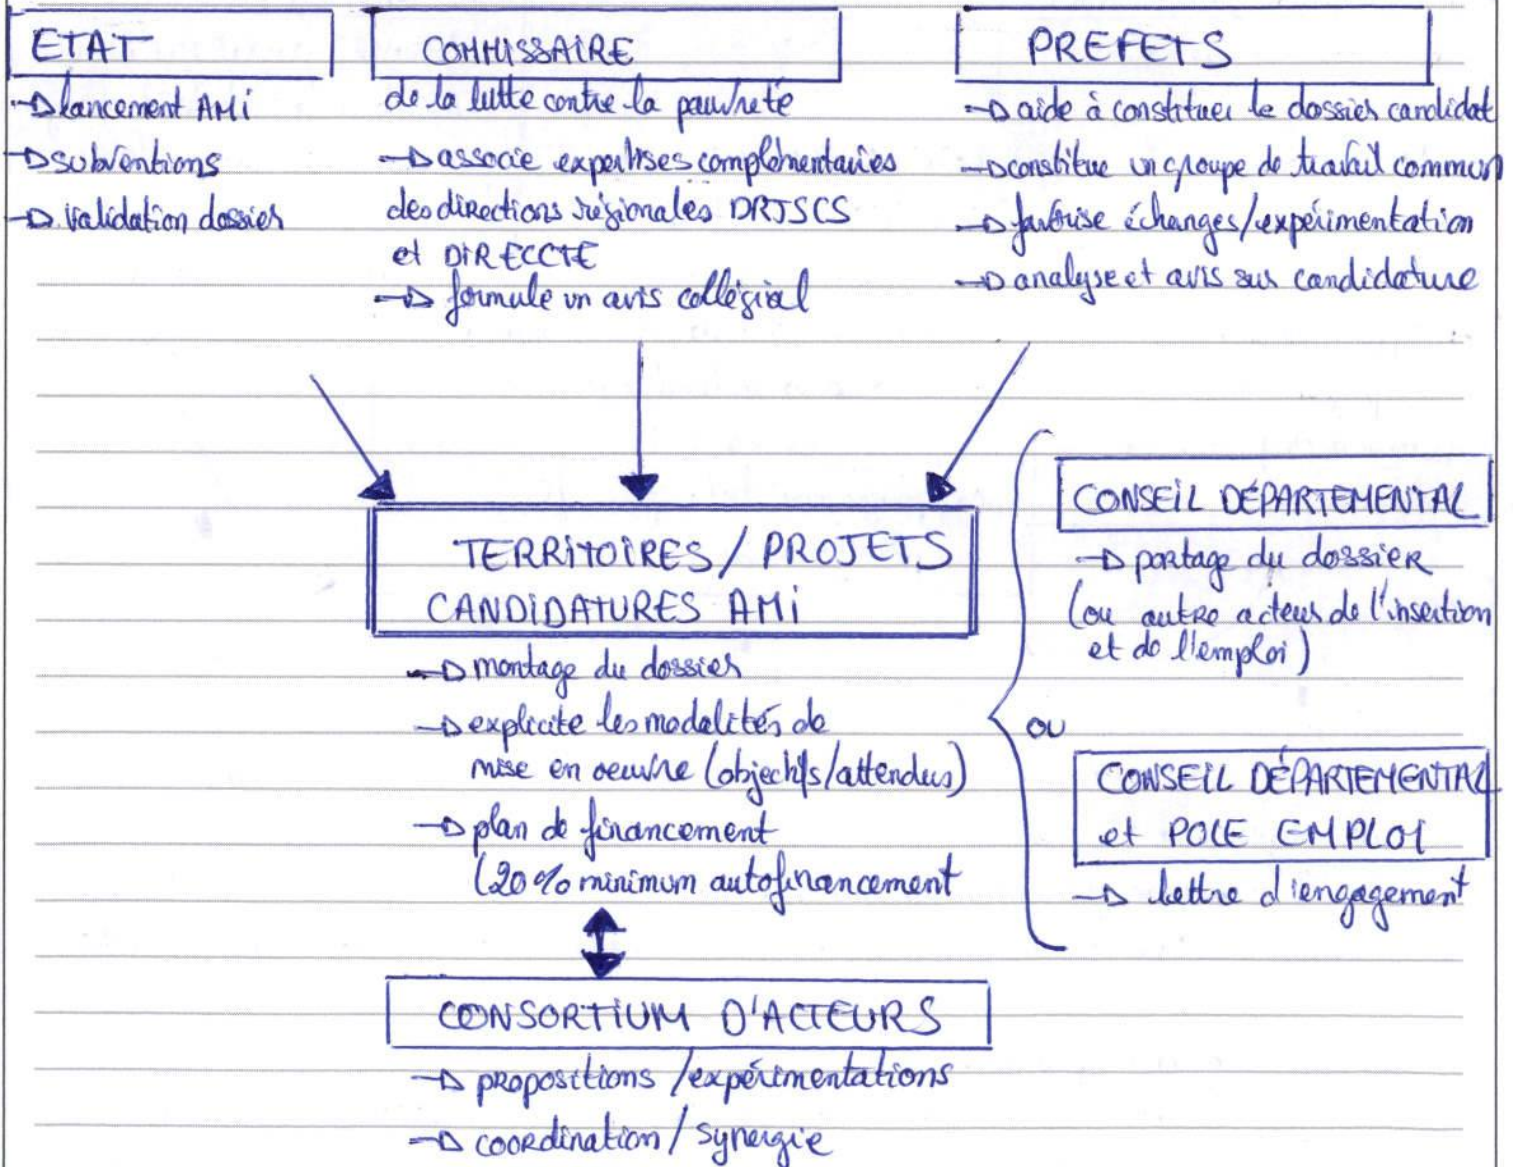 ETAT
→ lancement AMi
→ subventions
→ validation dossier
COMMISSAIRE
de la lutte contre la pauvreté
→ associe expertises complémentaires
des directions régionales DRJSCS
et DIRECCTE
→ formule un avis collégial
PREFETS
→ aide à constituer le dossier candidat
→ constitue un groupe de travail commun
→ favorise échanges/expérimentation
→ analyse et avis sur candidature
TERRITOIRES / PROJETS
CANDIDATURES AMi
→ montage du dossier
→ explicite les modalités de
mise en oeuvre (objectifs/attendus)
→ plan de financement
(20% minimum autofinancement
CONSEIL DÉPARTEMENTAL
→ portage du dossier
(ou autre acteur de l'insertion
et de l'emploi)
ou
CONSEIL DÉPARTEMENTAL
et POLE EMPLOI
→ lettre d'engagement
CONSORTIUM D'ACTEURS
→ propositions / expérimentations
→ coordination / synergie